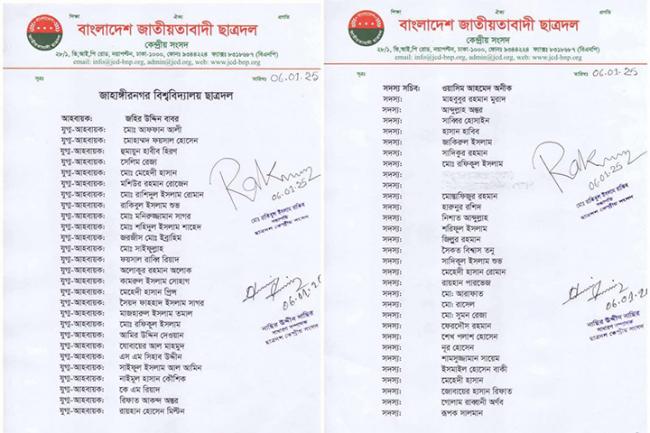 শিক্ষা ঐক্য প্রগতি
বাংলাদেশ জাতীয়তাবাদী ছাত্রদল
কেন্দ্রীয় সংসদ
২৮/১, ভি,আই,পি রোড, নয়াপল্টন, ঢাকা-১০০০, ফোনঃ ৯৩৪৪২২৪ ফ্যাক্সঃ ৮৩১৮৬৮৭ (বিএনপি)
email: info@jcd-bnp.org, admin@jcd.org, web: www.jcd-bnp.org
সূত্রঃ তারিখঃ 06.01.25
জাহাঙ্গীরনগর বিশ্ববিদ্যালয় ছাত্রদল
আহবায়ক: জহির উদ্দিন বাবর
যুগ্ম-আহবায়ক: মোঃ আফফান আলী
যুগ্ম-আহবায়ক: মোহাম্মদ ফয়সাল হোসেন
যুগ্ম-আহবায়ক: হুমায়ুন হাবীব হিরণ
যুগ্ম-আহবায়ক: সেলিম রেজা
যুগ্ম-আহবায়ক: মোঃ মেহেদী হাসান
যুগ্ম-আহবায়ক: মশিউর রহমান রোজেন
যুগ্ম-আহবায়ক: মোঃ রাশিদুল ইসলাম রোমান
যুগ্ম-আহবায়ক: রাকিবুল ইসলাম শুভ
যুগ্ম-আহবায়ক: মোঃ মনিরুজ্জামান সাগর
যুগ্ম-আহবায়ক: মোঃ শহিদুল ইসলাম শাহেদ
যুগ্ম-আহবায়ক: জরজীস মোঃ ইব্রাহিম
যুগ্ম-আহবায়ক: মোঃ সাইফুল্লাহ
যুগ্ম-আহবায়ক: ফয়সাল রাব্বি রিয়াদ
যুগ্ম-আহবায়ক: অলোকুর রহমান অলোক
যুগ্ম-আহবায়ক: কামরুল ইসলাম সোহাগ
যুগ্ম-আহবায়ক: মেহেদী হাসান প্রিন্স
যুগ্ম-আহবায়ক: সৈয়দ ফাহাদ ইসলাম সাগর
যুগ্ম-আহবায়ক: মাজহারুল ইসলাম তমাল
যুগ্ম-আহবায়ক: মোঃ রফিকুল ইসলাম
যুগ্ম-আহবায়ক: আমির উদ্দিন দেওয়ান
যুগ্ম-আহবায়ক: যোবায়ের আল মাহমুদ
যুগ্ম-আহবায়ক: এস এম সিহাব উদ্দীন
যুগ্ম-আহবায়ক: সাইফুল ইসলাম আল আমিন
যুগ্ম-আহবায়ক: নাইমুল হাসান কৌশিক
যুগ্ম-আহবায়ক: কে এম রিয়াদ
যুগ্ম-আহবায়ক: রিফাত আকন্দ অন্তর
যুগ্ম-আহবায়ক: রায়হান হোসেন মিল্টন
06.01.25
মোঃ রাকিবুল ইসলাম রাকিব
সভাপতি
ছাত্রদল কেন্দ্রীয় সংসদ
06.01.25
নাছির উদ্দীন নাছির
সাধারণ সম্পাদক
ছাত্রদল কেন্দ্রীয় সংসদ
শিক্ষা ঐক্য প্রগতি
বাংলাদেশ জাতীয়তাবাদী ছাত্রদল
কেন্দ্রীয় সংসদ
২৮/১, ভি,আই,পি রোড, নয়াপল্টন, ঢাকা-১০০০, ফোনঃ ৯৩৪৪২২৪ ফ্যাক্সঃ ৮৩১৮৬৮৭ (বিএনপি)
email: info@jcd-bnp.org, admin@jcd.org, web: www.jcd-bnp.org
সূত্রঃ তারিখঃ 06.01.25
সদস্য সচিব: ওয়াসিম আহমেদ অনীক
সদস্য: মাহবুবুর রহমান মুরাদ
সদস্য: আব্দুল্লাহ অন্তর
সদস্য: সাব্বির হোসাইন
সদস্য: হাসান হাবিব
সদস্য: জাকিরুল ইসলাম
সদস্য: সাদিকুর রহমান
সদস্য: মোঃ রফিকুল ইসলাম
সদস্য:
সদস্য:
সদস্য: মোস্তাফিজুর রহমান
সদস্য: হারুনুর রশিদ
সদস্য: নিশাত আব্দুল্লাহ
সদস্য: শরিফুল ইসলাম
সদস্য: জিল্লুর রহমান
সদস্য: সৈকত বিশ্বাস তনু
সদস্য: সাদিকুল ইসলাম শুভ
সদস্য: মেহেদী হাসান রোমান
সদস্য: রায়হান পারভেজ
সদস্য: মোঃ আরাফাত
সদস্য: মোঃ রাসেল
সদস্য: মোঃ সুমন রেজা
সদস্য: ফেরদৌস রহমান
সদস্য: শেখ পলাশ হোসেন
সদস্য: নূর হোসেন
সদস্য: শামসুজ্জামান সায়েম
সদস্য: ইসমাইল হোসেন বাকী
সদস্য: মেহেদী হাসান
সদস্য: জোবায়ের হাসান রিফাত
সদস্য: গোলাম রাব্বানী অর্ণব
সদস্য: রূপক সালমান
06.01.25
মোঃ রাকিবুল ইসলাম রাকিব
সভাপতি
ছাত্রদল কেন্দ্রীয় সংসদ
06.01.2
নাছির উদ্দীন নাছির
সাধারণ সম্পাদক
ছাত্রদল কেন্দ্রীয় সংসদ